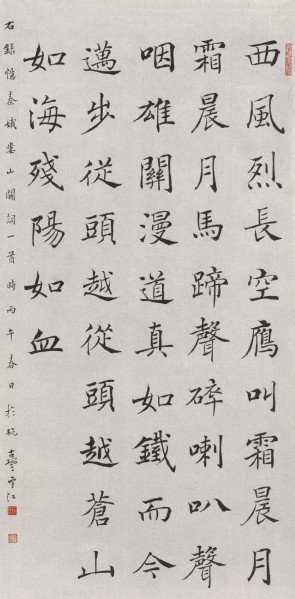 西風烈長空鷹叫霜晨月
霜晨月馬蹄聲碎喇叭聲
咽雄關漫道真如鐵而今
邁步從頭越從頭越蒼山
如海殘陽如血
右錄憶秦娥婁山關詞一首時丙午春日於杭